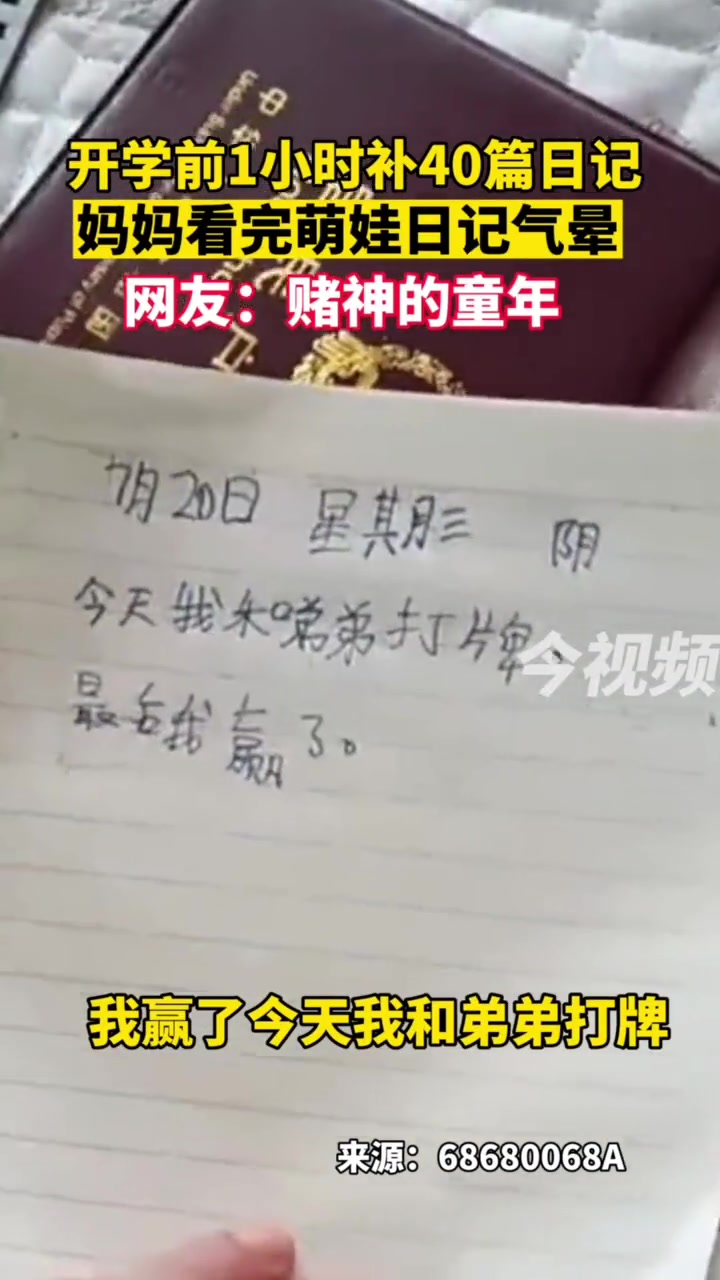 开学前1小时补40篇日记
妈妈看完萌娃日记气晕
网友：赌神的童年
7月20日 星期三 阴
今天我和弟弟打牌。
今视频
最后我赢了。
我赢了今天我和弟弟打牌
来源：68680068A